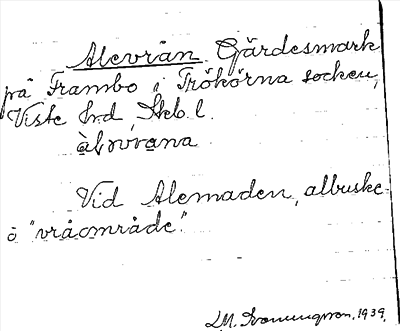 Alevrån. Gärdesmark
på Frambo i Trökörna socken,
Viste hrd, Skb. l.
àl vrana
Vid Alemaden, albuske-
o "vråområde"
1939.